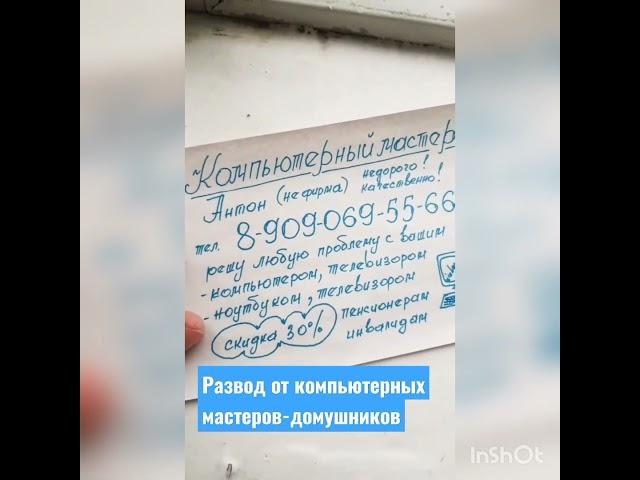 Компьютерный мастер
Антон (не фирма) недорого!
качественно!
тел. 8-909-069-55-66
решу любую проблему с вашим
- компьютером, телевизором
- ноутбуком, телевизором
скидка 30% пенсионерам
инвалидам
Развод от компьютерных
мастеров-домушников
InShOt